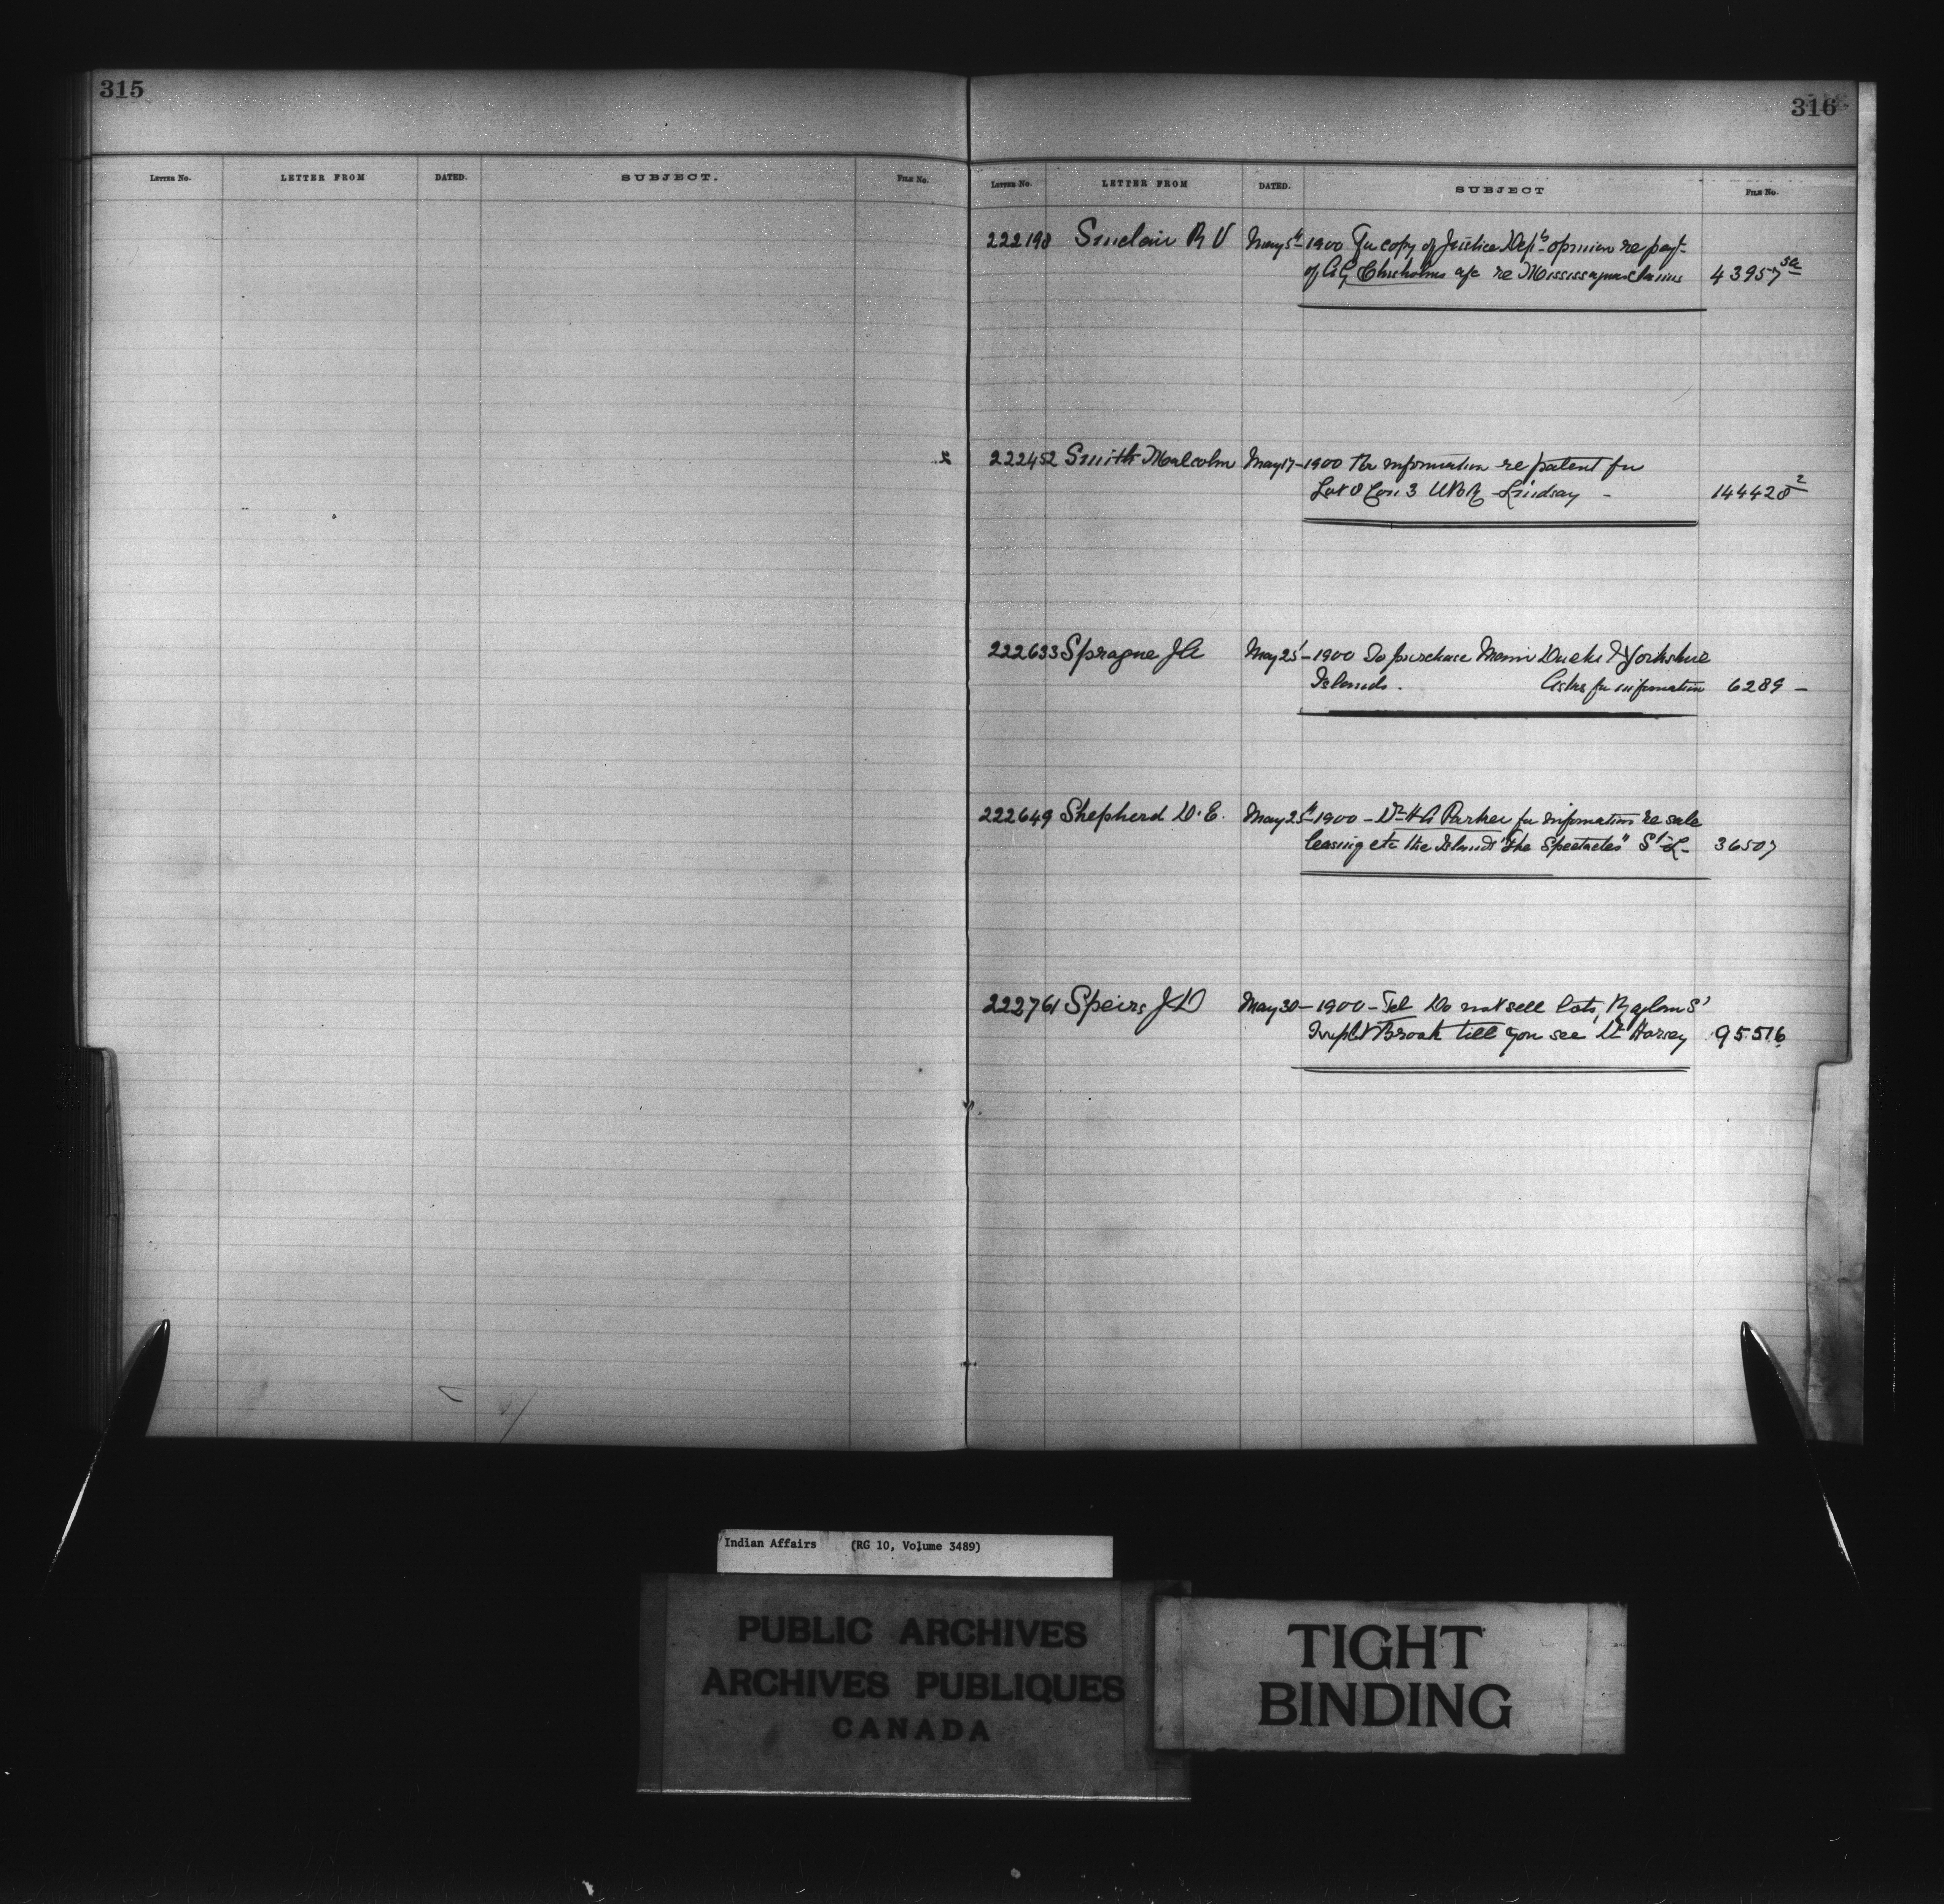 315
316
LETTER NO. LETTER FROM DATED. SUBJECT. FILE NO.
LETTER NO. LETTER FROM DATED. SUBJECT FILE NO.
222198 Sinclair R V May 5th 1900 For copy of Justice Dept's opinion re payt-
of A G Chisholms a/c re Mississagua claims 43957 5a
222452 Smith Malcolm May 17-1900 For information re patent for
Lot 8 Con 3 Lindsay - 144428 2
222633 Sprague J A May 25-1900 To purchase Main Ducks & Yorkshire
Islands. Asks for information 6289 -
222649 Shepherd D. E. May 25th 1900 - Dr H A Parker for information re sale
leasing etc the Islands "The Spectacles" St L- 36507
222761 Speirs J D May 30-1900-Tel Do not sell lots,
Brook till you see Dr Harvey 95516
Indian Affairs (RG 10, Volume 3489)
PUBLIC ARCHIVES
ARCHIVES PUBLIQUES
CANADA
TIGHT
BINDING